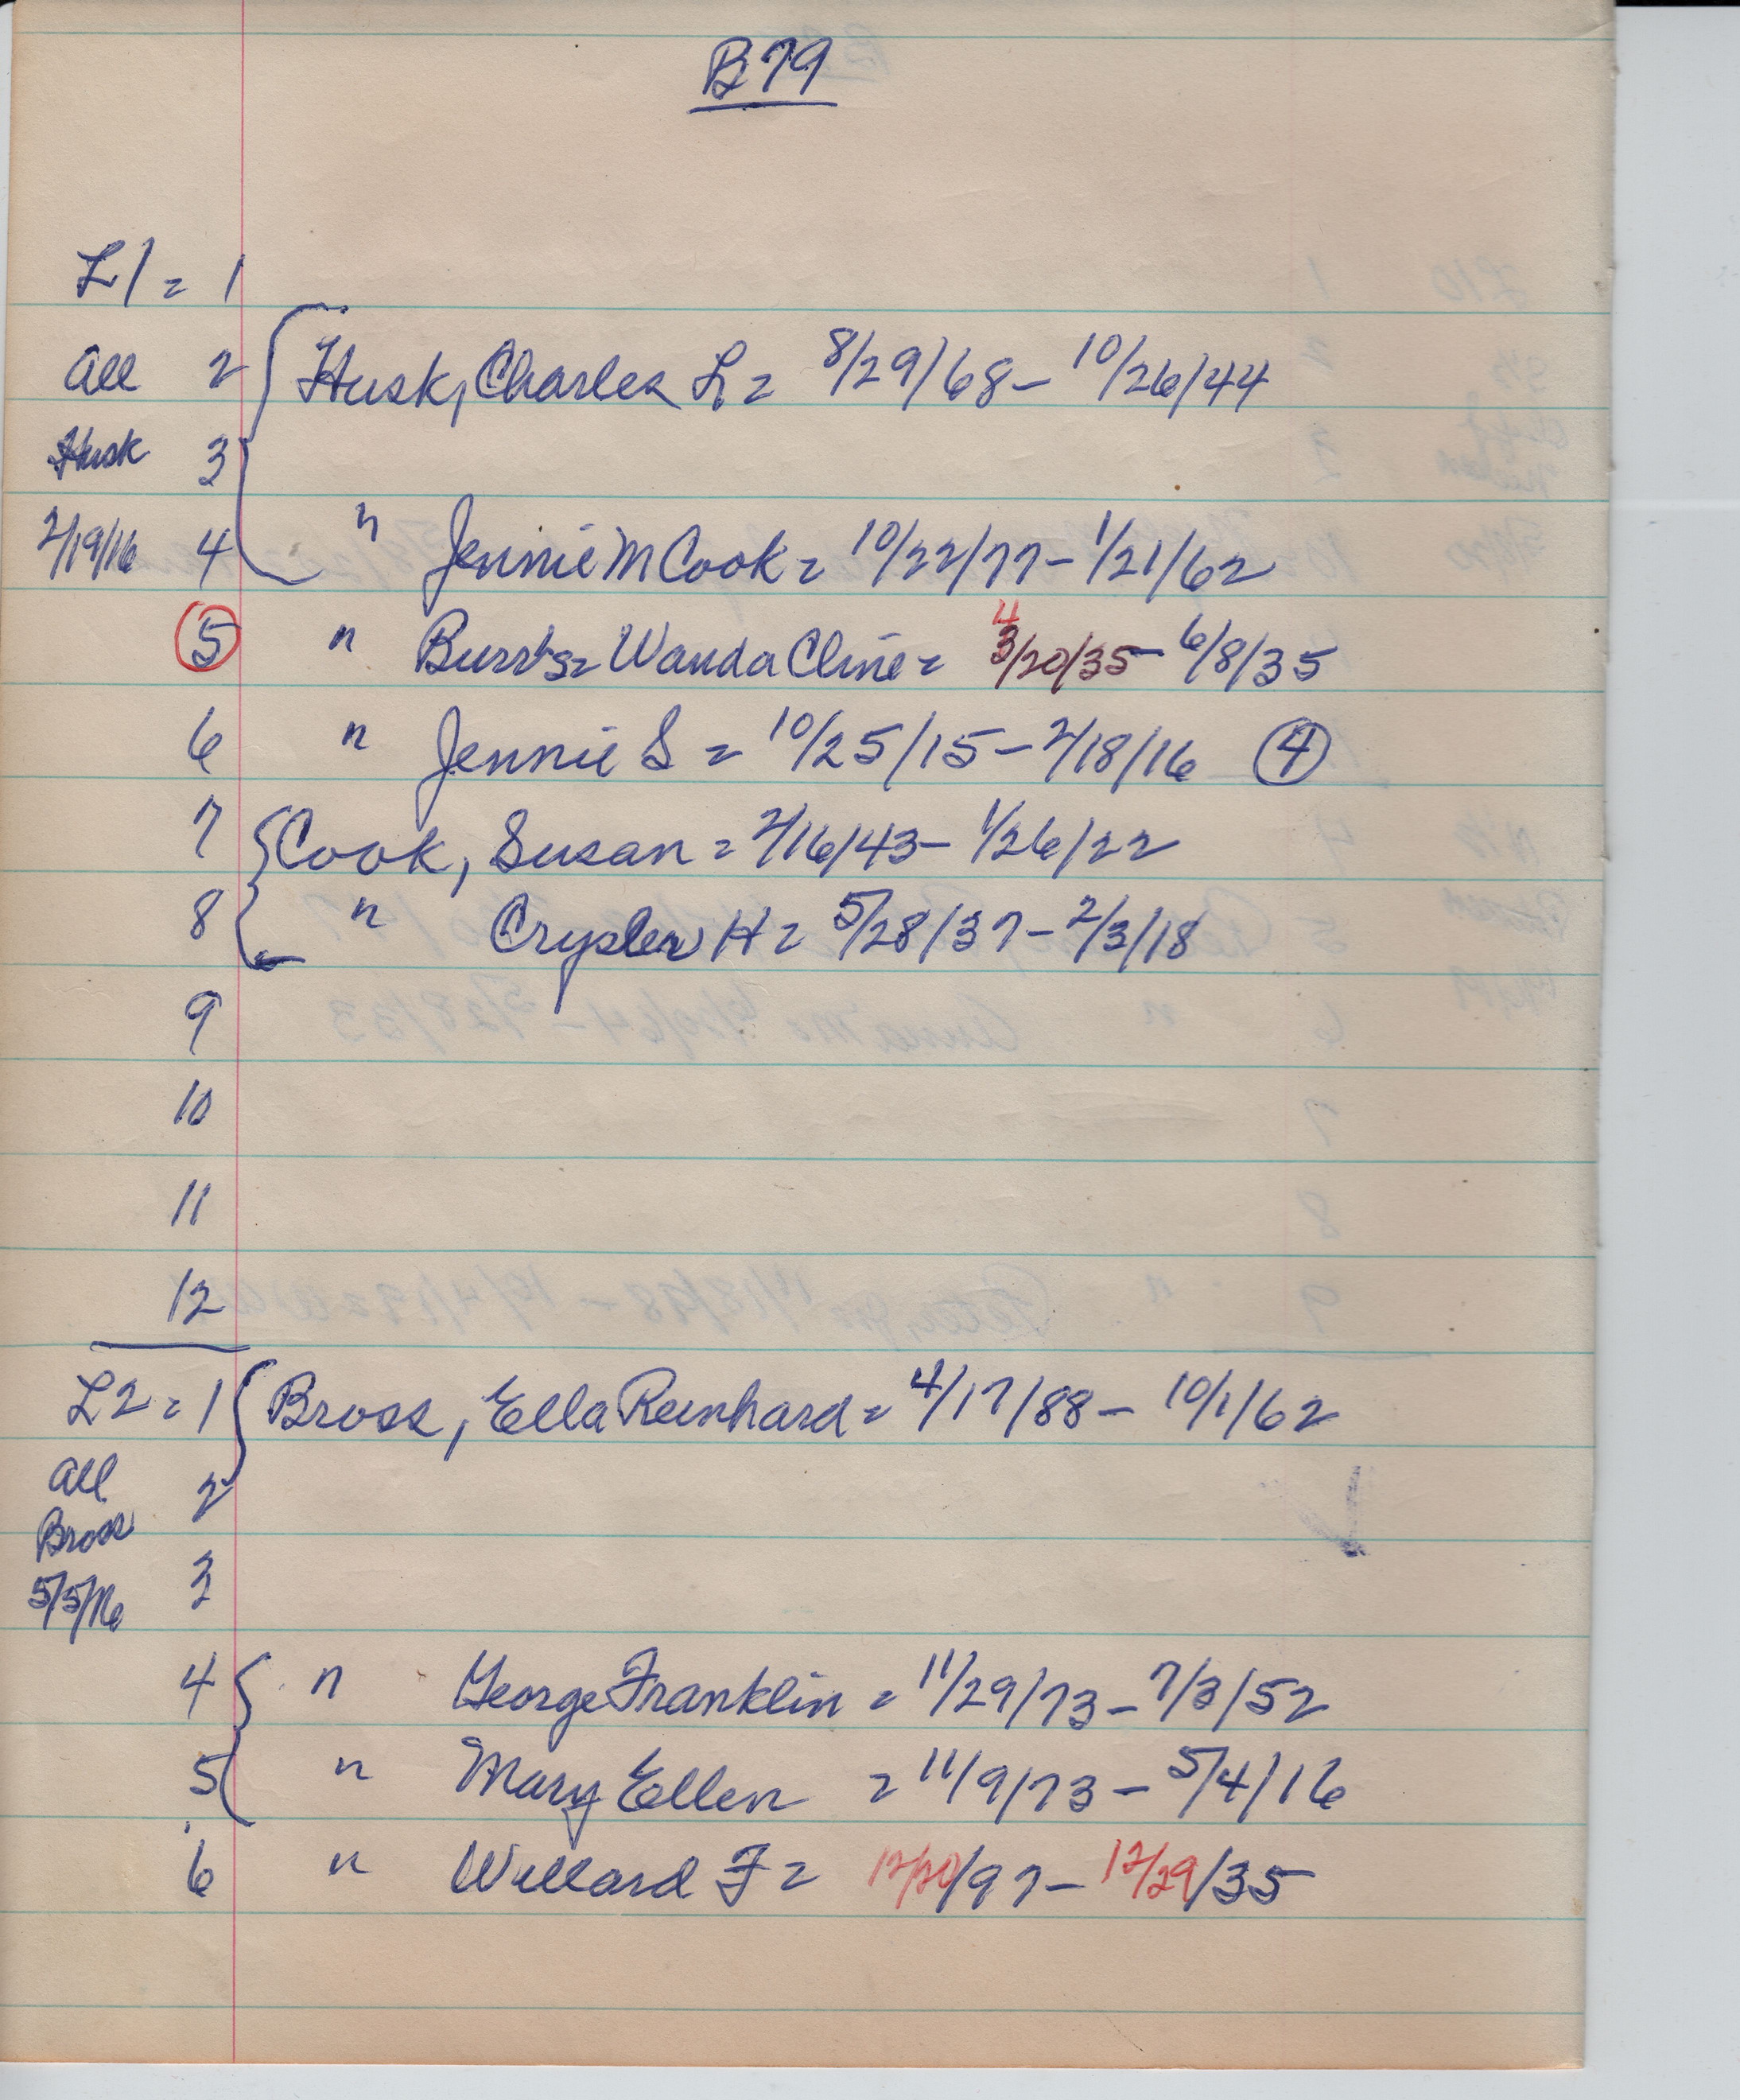 B79
L1 = 1
All 2 Husk, Charles L = 8/29/68 - 10/26/44
Husk 3
2/19/16 4 " Jennie M Cook = 10/22/77 - 1/21/62
5 " = Wanda Cline = 3/20/35 - 6/8/35
4
6 " Jennie S = 10/25/15 - 2/18/16 4
7 Cook, Susan = 2/16/43 - 1/26/22
8 " Crysler H = 5/28/37 - 2/3/18
9
10
11
12
L2 = 1 Bross, Ella Reinhard = 4/17/88 - 10/1/62
All 2
Bross
5/5/16 3
4 " George Franklin = 11/29/73 - 7/3/52
5 " Mary Ellen = 11/9/73 - 5/4/16
6 " Willard F = 12/20/97 - 12/29/35